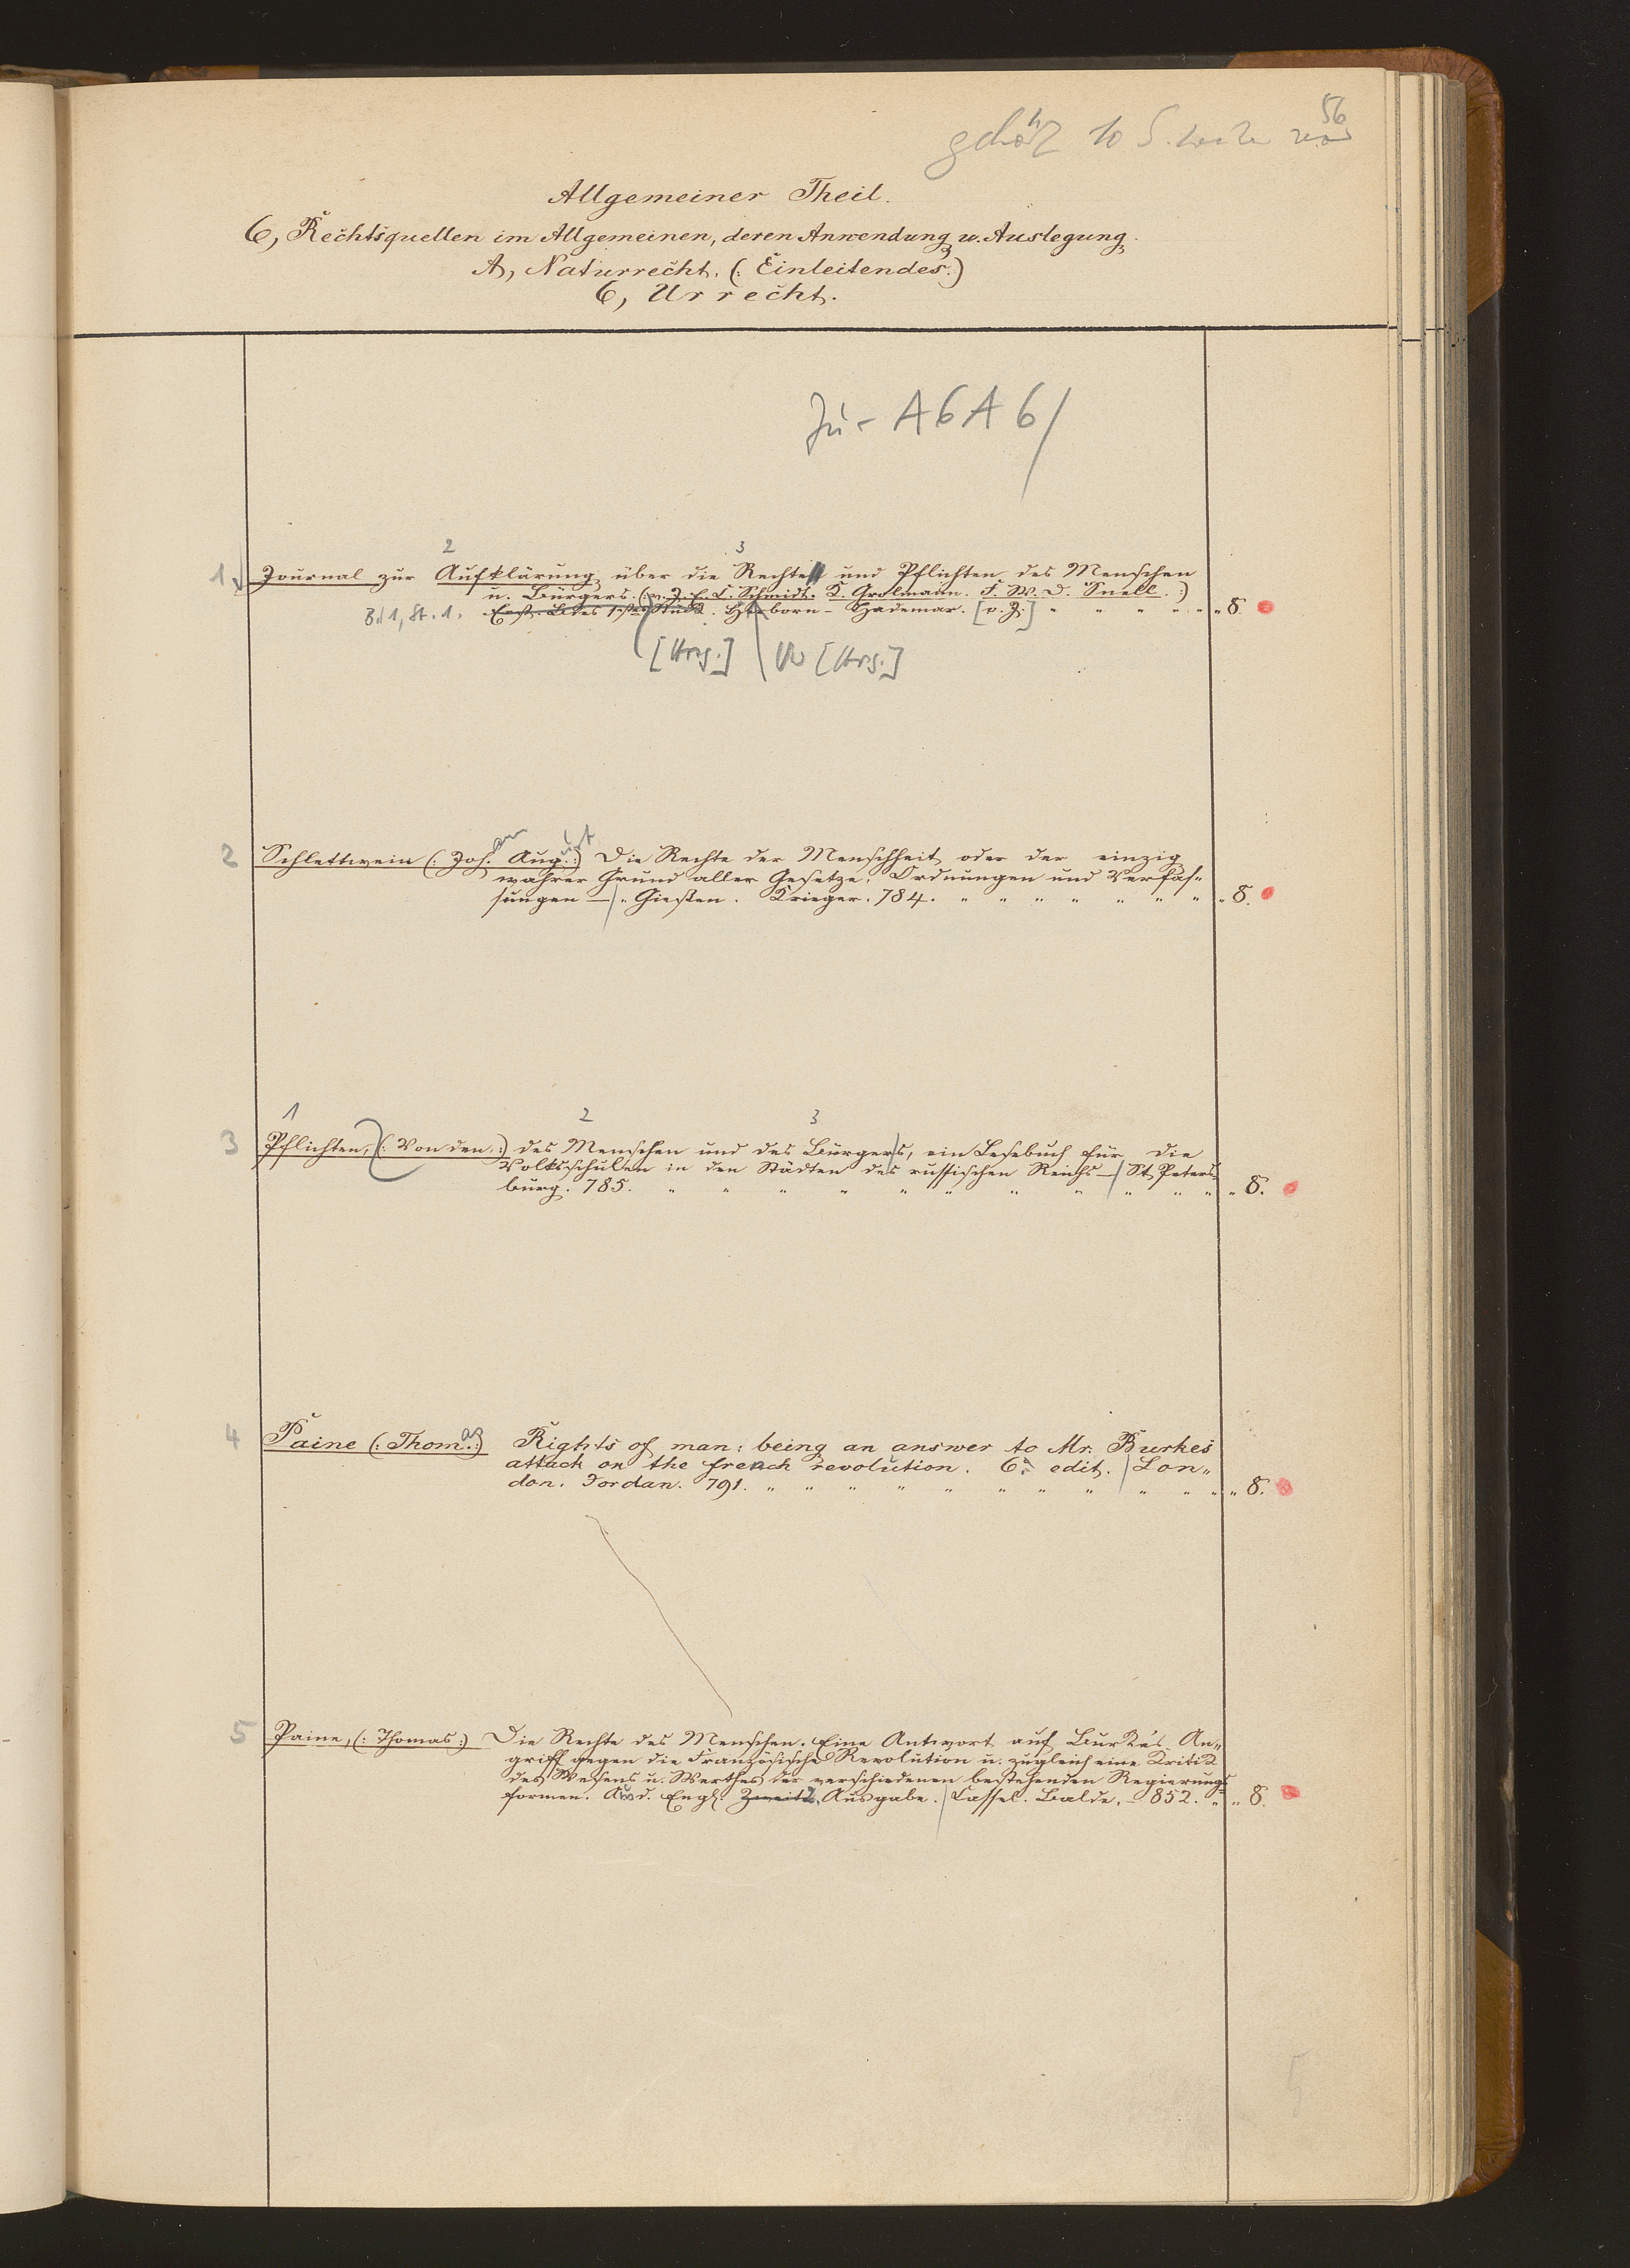 56
gehört 10 S. weiter
Allgemeiner Theil.
6, Rechtsquellen im Allgemeinen, deren Anwendung u. Auslegung.
A, Naturrecht. (: Einleitendes :)
6, Urrecht.
Ju - A 6 A 6/
2 3
1 Journal zur Aufklärung über die Rechte und Pflichten des Menschen
u. Bürgers. (: v. J. E. C. Schmidt. K. Grolmann. F. W. D. Snell. :)
Bd 1, St. 1. Erst. Bdes 1stes Stück. Herborn - Hadamar. [o. J.] " " " " " " 8.
[Hrsg.] [Hrsg.]
an ust
2 Schlettwein (: Joh. Aug. :) Die Rechte der Menschheit oder der einzig
wahrer Grund aller Gesetze, Ordnungen und Verfas-
sungen — " Giessen. Krieger. 784. " " " " " " " " 8.
1 2 3
3 Pflichten, (: Von den :) des Menschen und des Bürgers, ein Lesebuch für die
Volksschulen in den Städten des russischen Reichs — St. Peters-
burg. 785. " " " " " " " " " " " " 8.
as
4 Paine (: Thom. :) Rights of man: being an answer to Mr. Burkes
attack on the french revolution. 6. edit. Lon-
don. Jordan. 791. " " " " " " " " " " " " 8.
5 Paine, (: Thomas :) Die Rechte des Menschen. Eine Antwort auf Burke's An-
griff gegen die Französische Revolution u. zugleich eine Kritik
des Wesens u. Werthes der verschiedenen bestehenden Regierungs-
formen. Aus d. Engl. Zweite 2. Ausgabe. Cassel. Balde. - 852. " " 8.
5